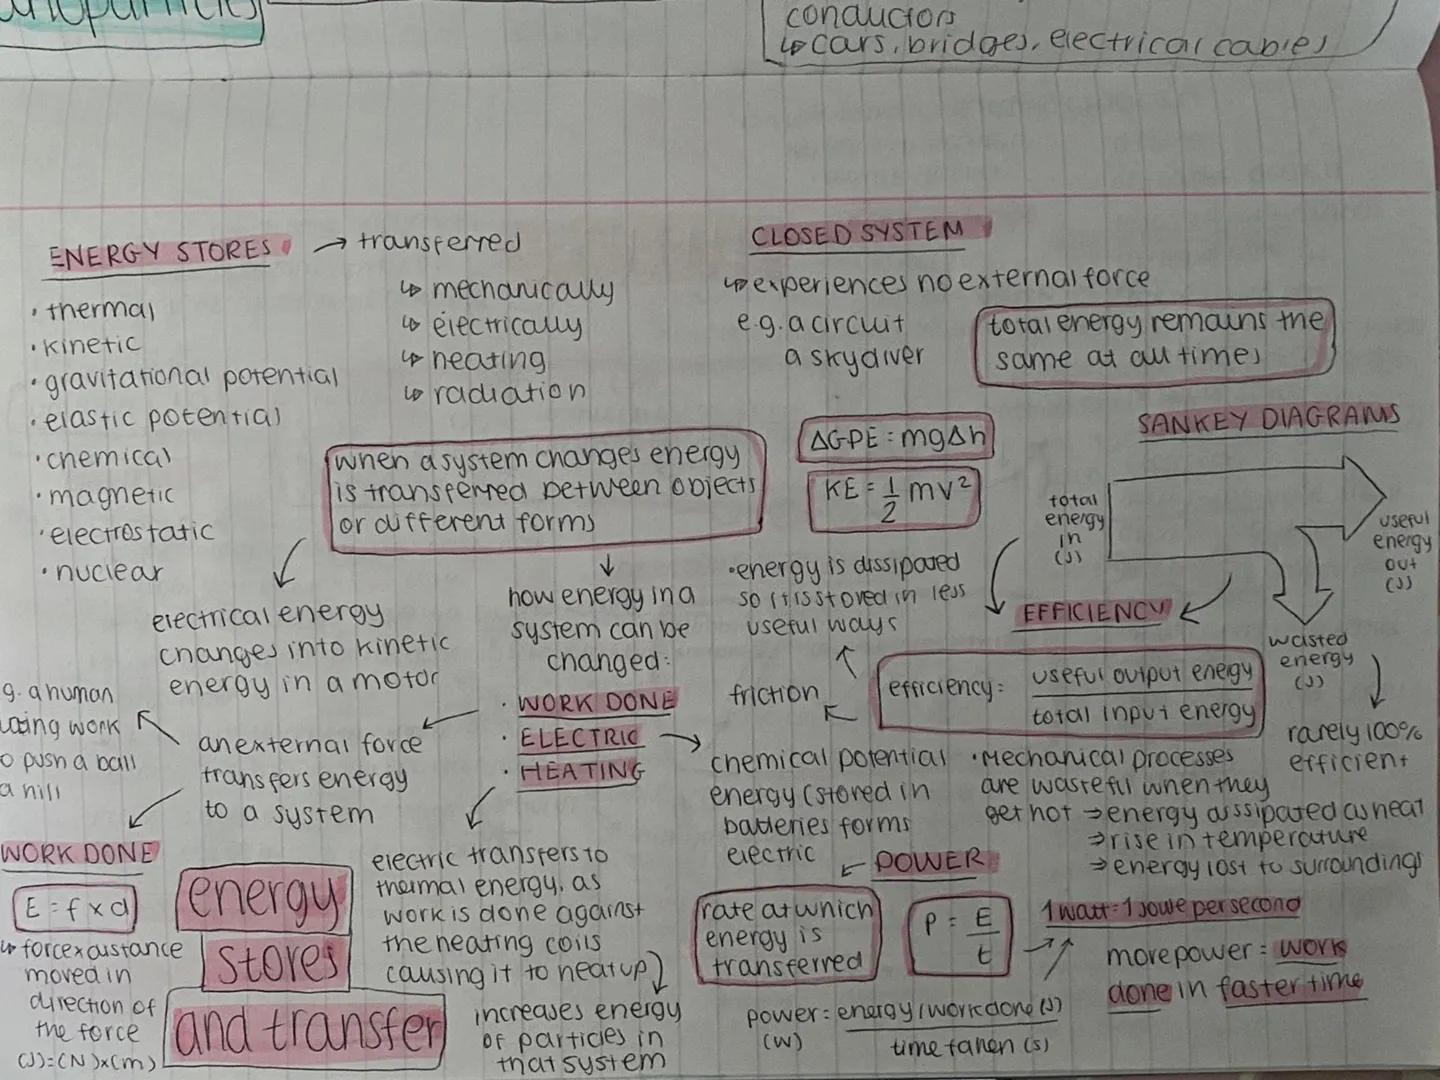 conductors
↳ cars, bridges, electrical cables
ENERGY STORES → transferred
• thermal
• kinetic
• gravitational potential
• elastic potential
• chemical
• magnetic
• electrostatic
• nuclear
↳ mechanically
↳ electrically
↳ heating
↳ radiation
CLOSED SYSTEM
↳ experiences no external force
e.g. a circuit
a skydiver
total energy remains the
same at all times
when a system changes energy
is transferred between objects
or different forms
ΔGPE = mgΔh
KE = 1/2 mv²
SANKEY DIAGRAMS
total
energy
in
(J)
useful
energy
out
(J)
wasted
energy
(J)
rarely 100%
efficient
electrical energy
changes into kinetic
energy in a motor
how energy in a
system can be
changed:
• WORK DONE
• ELECTRIC
• HEATING
• energy is dissipated
so it is stored in less
useful ways
friction
EFFICIENCY
efficiency = useful output energy
total input energy
g. a human
doing work
o push a ball
a hill
an external force
transfers energy
to a system
chemical potential
energy (stored in
batteries forms
electric
• Mechanical processes
are wasteful when they
get hot ⇒ energy dissipated as heat
⇒ rise in temperature
⇒ energy lost to surroundings
WORK DONE
E = f x d
↳ force x distance
moved in
direction of
the force
(J) = (N) x (m)
energy
stores
and transfer
electric transfers to
thermal energy, as
work is done against
the heating coils
causing it to heat up
increases energy
of particles in
that system
← POWER
rate at which
energy is
transferred
P = E
t
1 watt = 1 joule per second
more power = work
done in faster time
power = energy/workdone (J)
(W)
time taken (s)